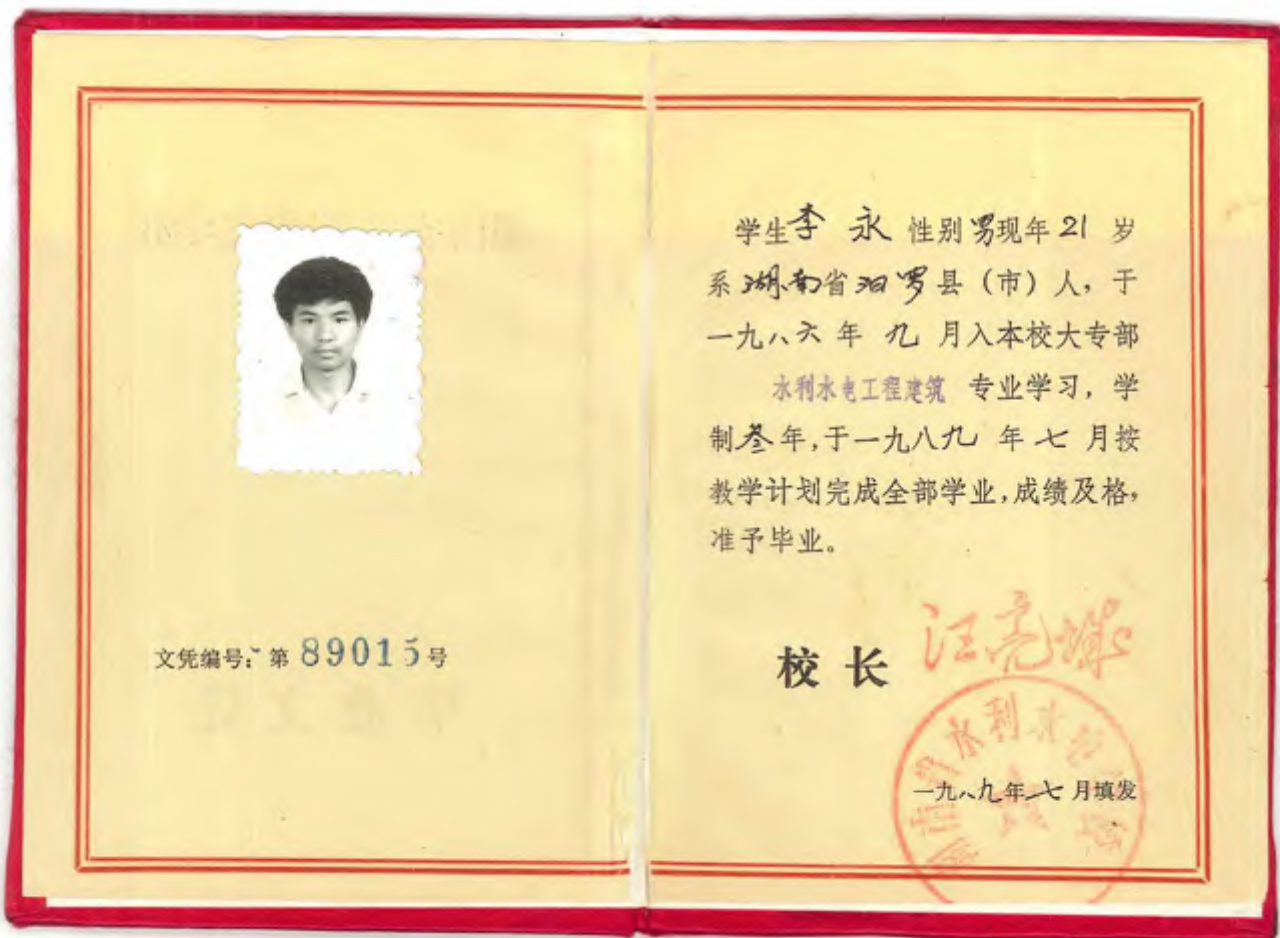 文凭编号：第 89015 号
学生 李 永 性别 男 现年 21 岁
系 湖南 省 汨罗 县（市）人，于
一九八六 年 九 月入本校大专部
水利水电工程建筑 专业学习，学
制 叁 年，于一九八九 年 七 月按
教学计划完成全部学业，成绩及格，
准予毕业。
校 长
一九八九年 七 月填发
湖南省水利水电